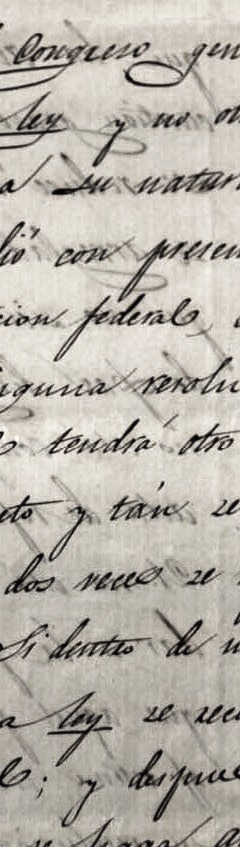 Congreso gen
ley y no ot
a su natur
lió con presen
cion federal,
inguna resolu
tendrá otro
eto y tán se
dos veces se
Si dentro de u
a ley se reci
l; y despues
se haga a